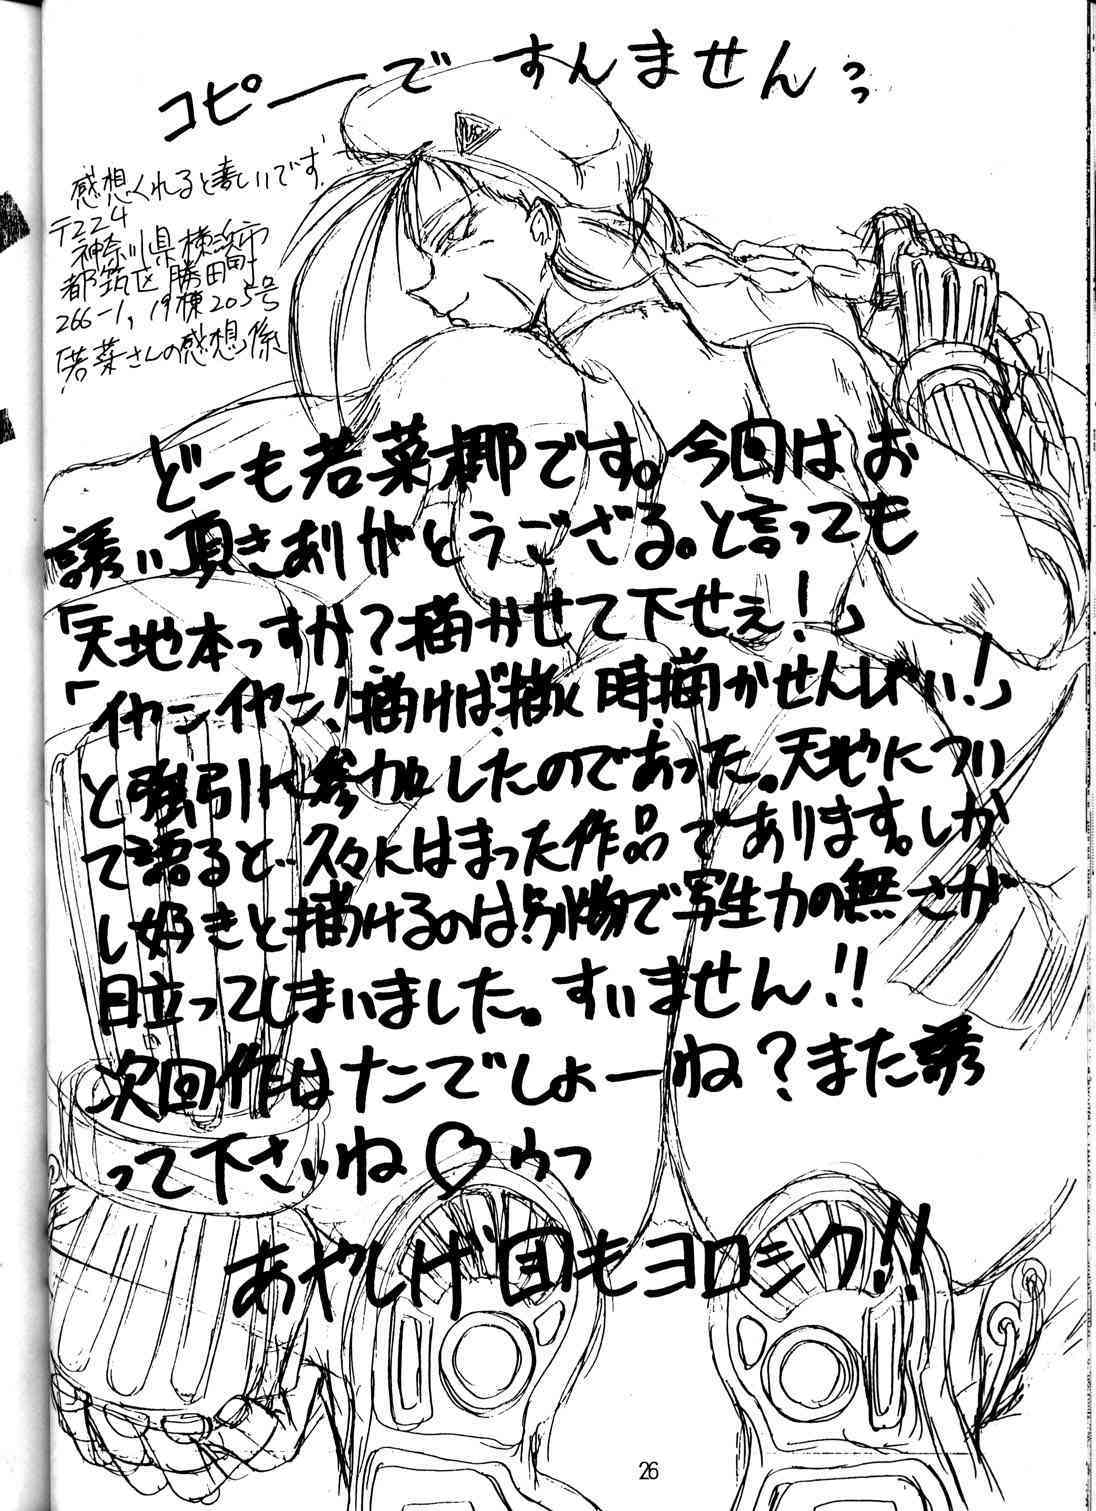 コピーで すんませんっ
感想くれると嬉しいです
〒224
神奈川県横浜市
都筑区勝田町
266-1, 19棟205号
「若菜さんの感想係
どーも若菜椰です。今回はお
誘い頂きありがとうござる。と言っても
「天地本っすか?描かせて下せぇ!」
「イヤンイヤン!描けば描く時描かせんしゃい!」
と強引に参加したのであった。天地につい
て語ると、久々にはまった作品であります。しか
し好きと描けるのは別物で写生力の無さが
目立ってしまいました。すいません!!
次回作はナニでしょーね?また誘
って下さいね♡ウっ
あやしげ団もヨロシク!!
26